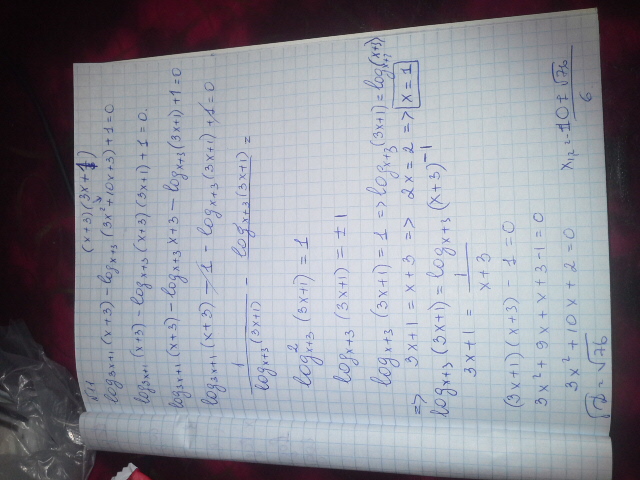 №1 (x+3)(3x+1)
log₃ₓ₊₁(x+3) - logₓ₊₃(3x²+10x+3)+1=0
log₃ₓ₊₁(x+3) - logₓ₊₃(x+3)(3x+1)+1=0.
log₃ₓ₊₁(x+3) - logₓ₊₃ x+3 - logₓ₊₃(3x+1)+1=0
log₃ₓ₊₁(x+3) - 1 - logₓ₊₃(3x+1)+1=0
1/logₓ₊₃(3x+1) - logₓ₊₃(3x+1) =
log²ₓ₊₃(3x+1)=1
logₓ₊₃(3x+1)=±1
logₓ₊₃(3x+1)=1 => logₓ₊₃(3x+1)=logₓ₊₃(x+3)
=> 3x+1=x+3 => 2x=2 => x=1
logₓ₊₃(3x+1)=logₓ₊₃(x+3)⁻¹
3x+1=1/(x+3)
(3x+1)(x+3)-1=0
3x²+9x+x+3-1=0
3x²+10x+2=0
√D=√76 x₁,₂=(-10±√76)/6